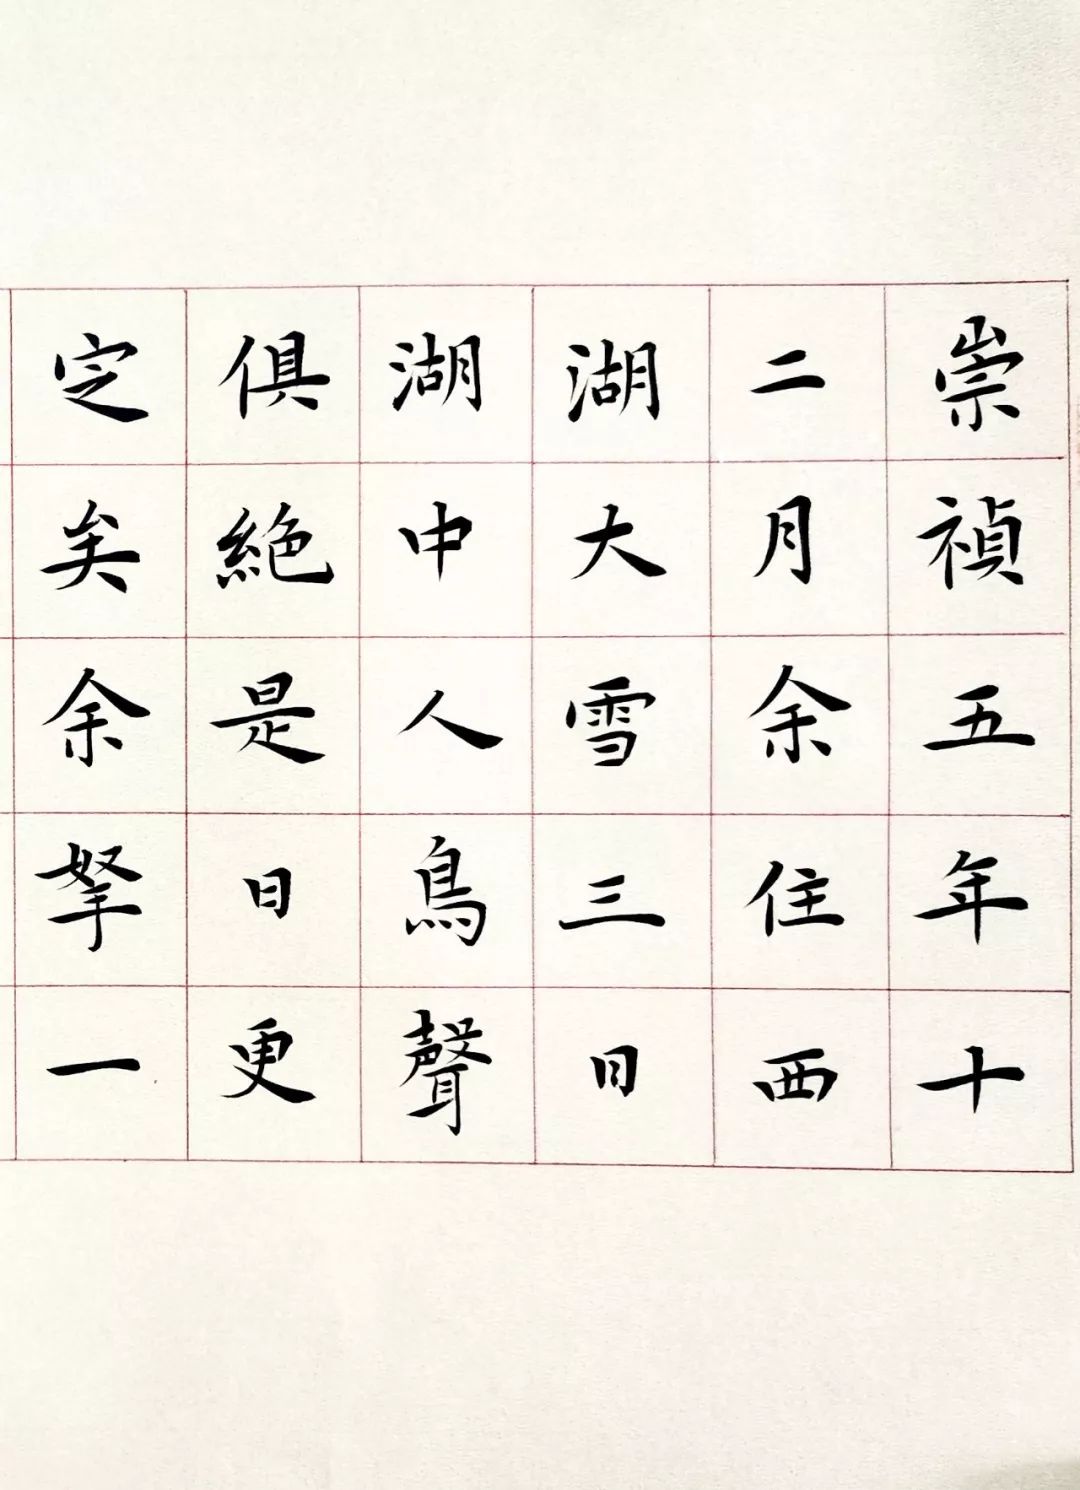 崇禎五年十
二月余住西
湖大雪三日
湖中人鳥聲
俱絶是日更
定矣余拏一